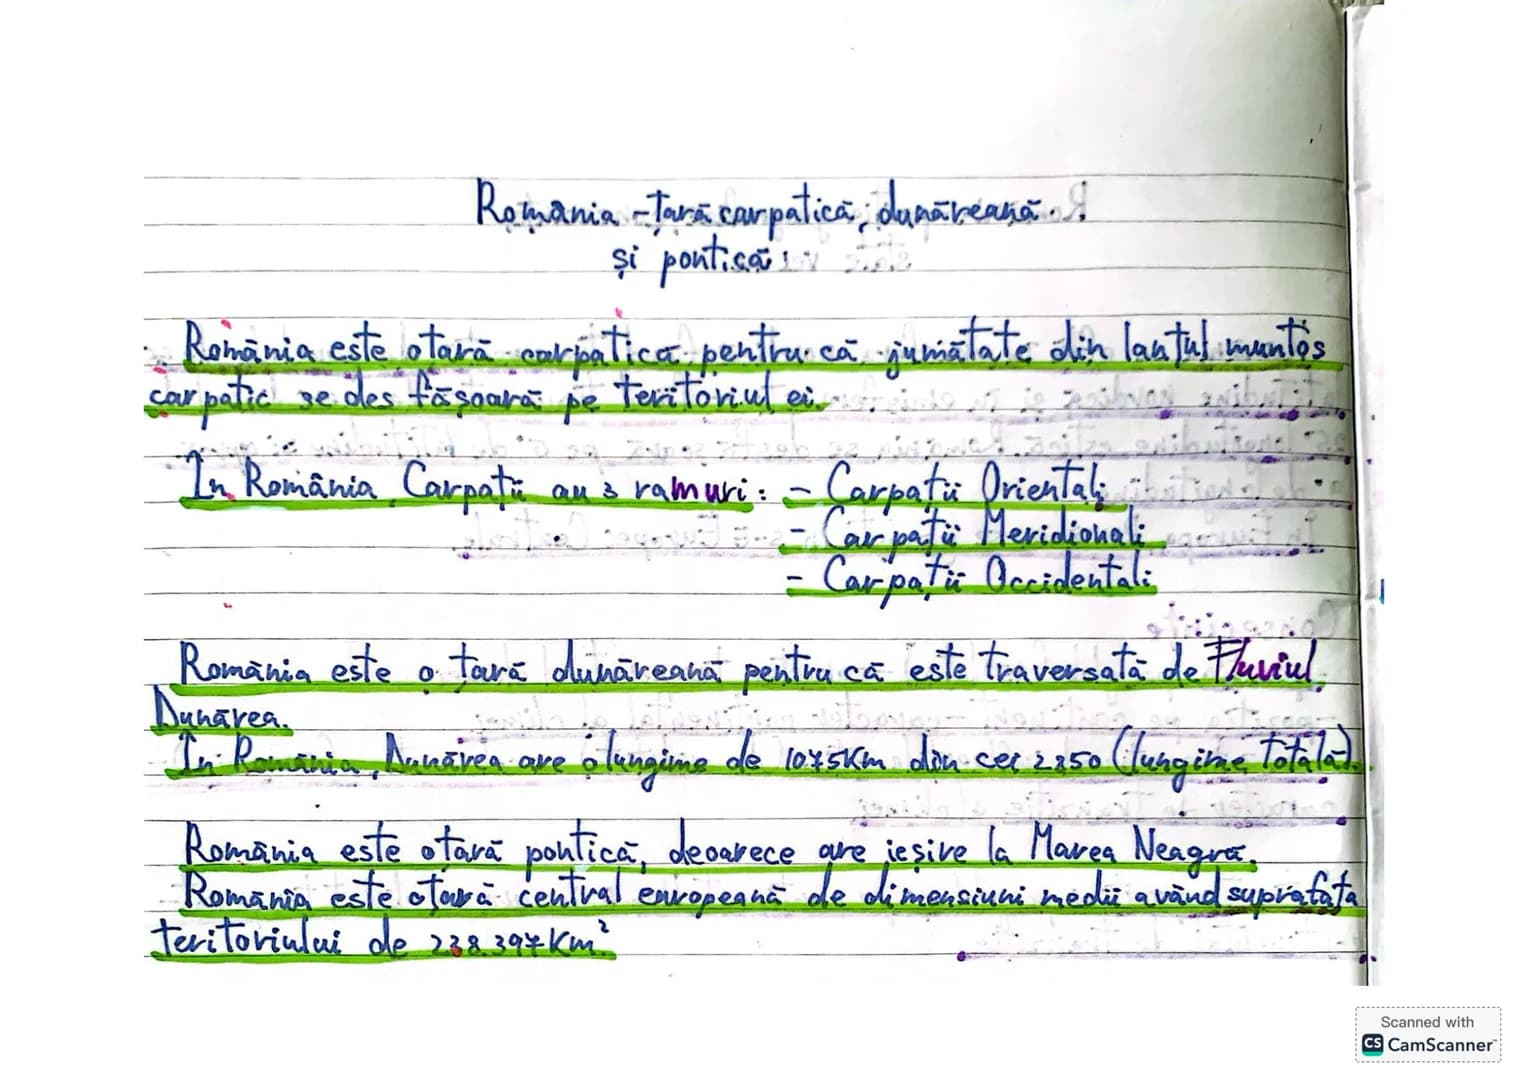 România - țară carpatică, dunăreană
și pontică
România este o țară carpatică pentru că jumătate din lanțul muntos
carpatic se desfășoară pe teritoriul ei.
În România, Carpații au 3 ramuri: - Carpații Orientali
- Carpații Meridionali
- Carpații Occidentali
România este o țară dunăreană pentru că este traversată de Fluviul
Dunărea.
În România, Dunărea are o lungime de 1075Km din cei 2850 (lungime totală).
România este o țară pontică, deoarece are ieșire la Marea Neagră.
România este o țară central europeană de dimensiuni medii având suprafața
teritoriului de 238.397Km²
Scanned with
CS CamScanner